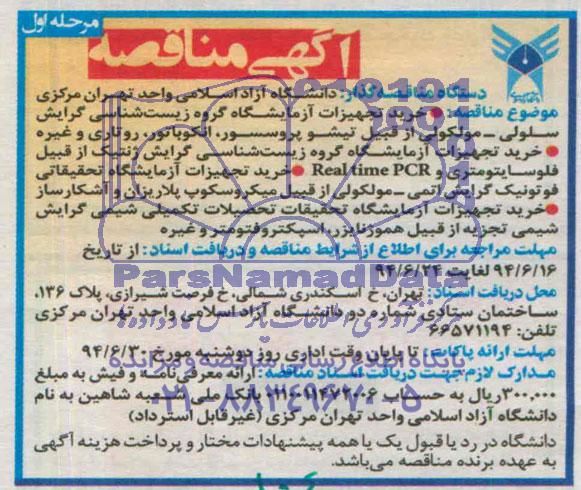 مرحله اول
آگهی مناقصه
دستگاه مناقصه گذار: دانشگاه آزاد اسلامی واحد تهران مرکزی
موضوع مناقصه: ● خرید تجهیزات آزمایشگاه گروه زیست‌شناسی گرایش
سلولی - مولکولی از قبیل تیشو پروسسور، انکوباتور، روتاری و غیره
● خرید تجهیزات آزمایشگاه گروه زیست‌شناسی گرایش ژنتیک از قبیل
فلوسایتومتری و Real time PCR ● خرید تجهیزات آزمایشگاه تحقیقاتی
فوتونیک گرایش اتمی - مولکولی از قبیل میکروسکوپ پلاریزان و آشکارساز
● خرید تجهیزات آزمایشگاه تحقیقات تحصیلات تکمیلی شیمی گرایش
شیمی تجزیه از قبیل هموژنایزر، اسپکتروفتومتر و غیره
مهلت مراجعه برای اطلاع از شرایط مناقصه و دریافت اسناد: از تاریخ
۹۴/۶/۱۶ لغایت ۹۴/۶/۲۴
ParsNamadData
محل دریافت اسناد: تهران، خ اسکندری شمالی، خ فرصت شیرازی، پلاک ۱۳۶،
ساختمان ستادی شماره دو دانشگاه آزاد اسلامی واحد تهران مرکزی
تلفن: ۶۶۵۷۱۱۹۴
مهلت ارائه پاکات: تا پایان وقت اداری روز دوشنبه مورخ ۹۴/۶/۳۰
مدارک لازم جهت دریافت اسناد مناقصه: ارائه معرفی‌نامه و فیش به مبلغ
۳۰۰,۰۰۰ ریال به حساب بانک ملی شعبه شاهین به نام
دانشگاه آزاد اسلامی واحد تهران مرکزی (غیرقابل استرداد)
دانشگاه در رد یا قبول یک یا همه پیشنهادات مختار و پرداخت هزینه آگهی
به عهده برنده مناقصه می‌باشد.